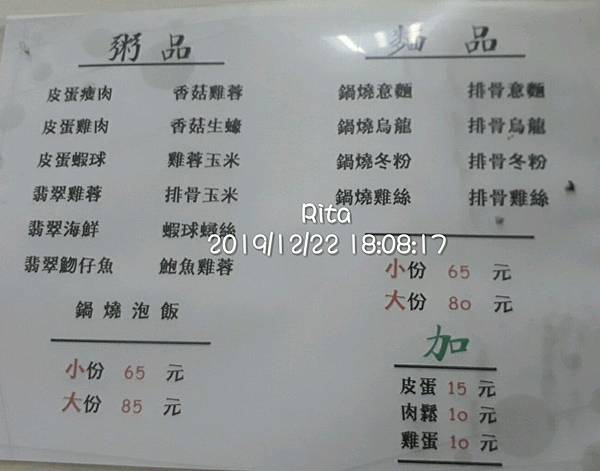 粥品
皮蛋瘦肉 香菇雞蓉
皮蛋雞肉 香菇生蠔
皮蛋蝦球 雞蓉玉米
翡翠雞蓉 排骨玉米
翡翠海鮮 蝦球蟳絲
翡翠魩仔魚 鮑魚雞蓉
鍋燒泡飯
小份 65 元
大份 85 元
麵品
鍋燒意麵 排骨意麵
鍋燒烏龍 排骨烏龍
鍋燒冬粉 排骨冬粉
鍋燒雞絲 排骨雞絲
小份 65 元
大份 80 元
加
皮蛋 15 元
肉鬆 10 元
雞蛋 10 元
Rita
2019/12/22 18:08:17